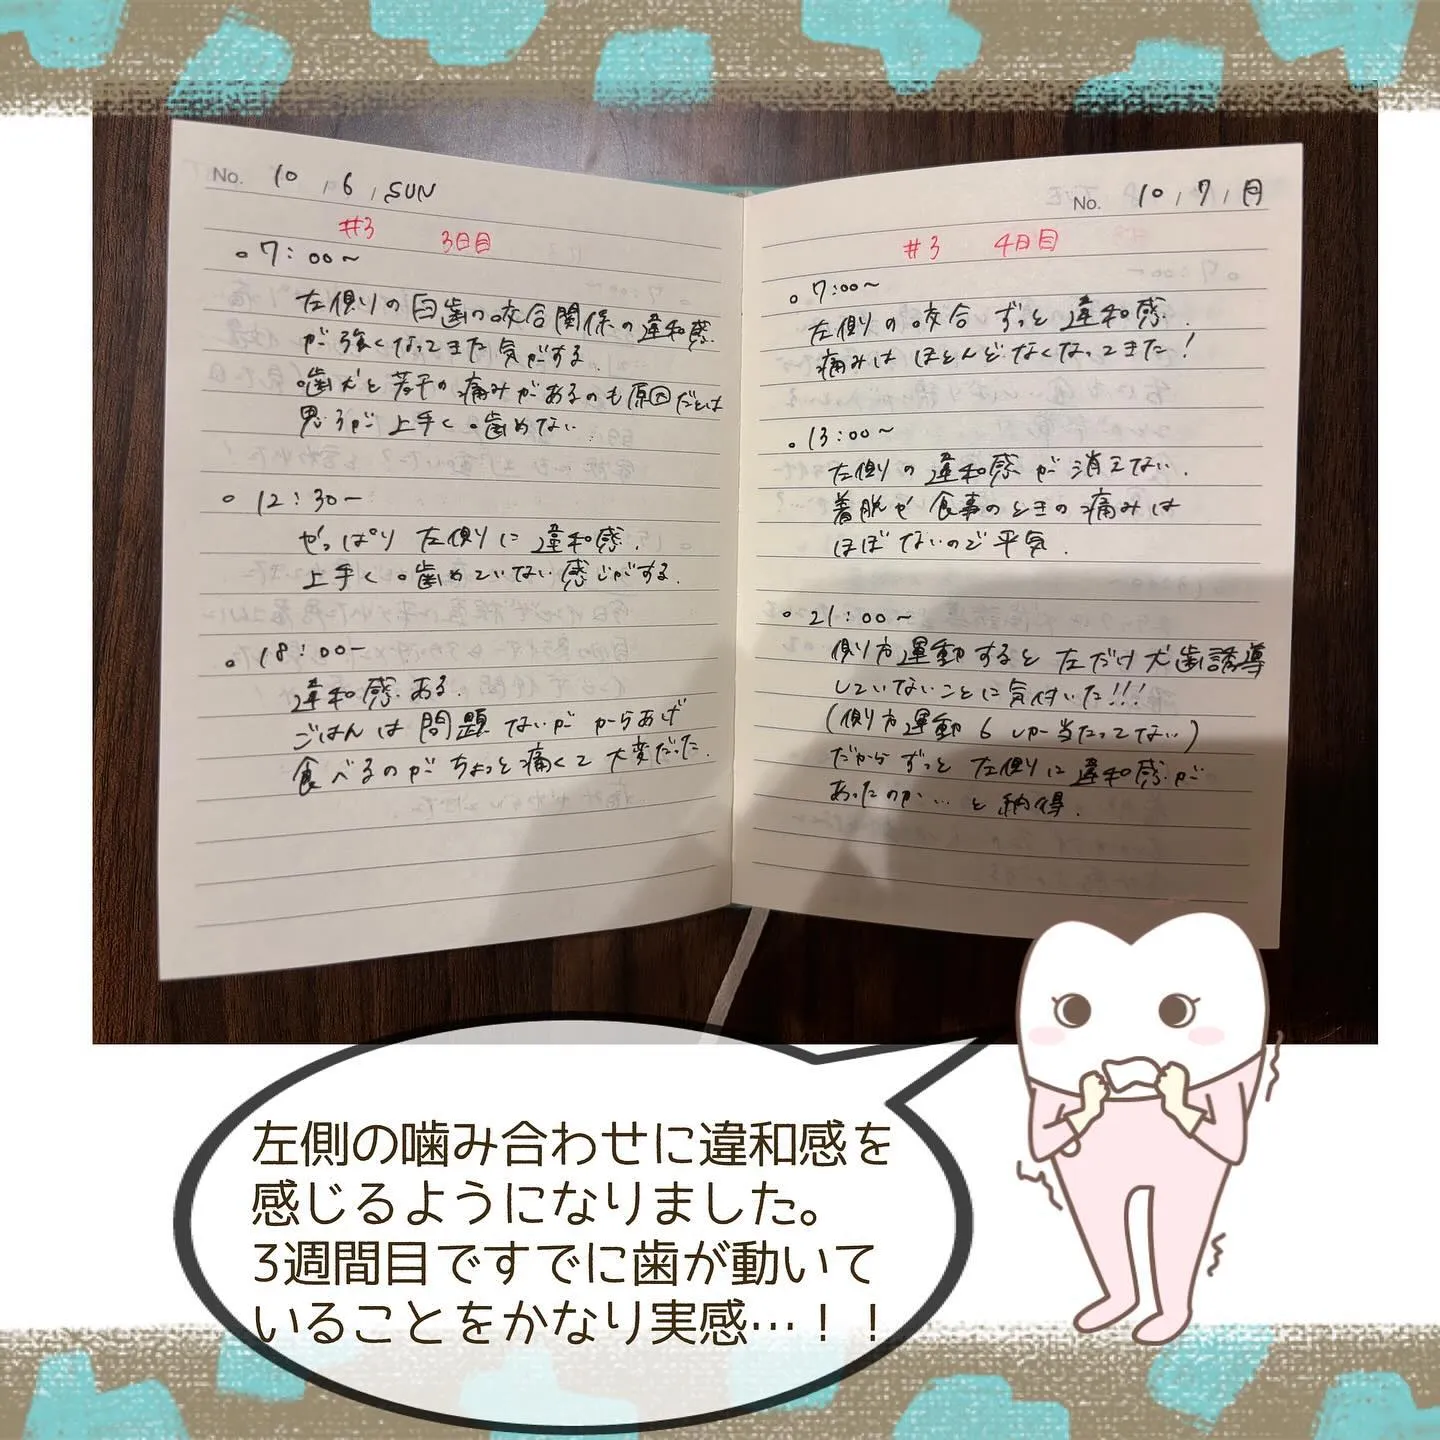 No. 10 , 6 , SUN
#3 3日目
○ 7:00〜
左側の臼歯の咬合関係の違和感
が強くなってきた気がする。
噛犬と若干の痛みがあるのも原因だとは
思うが上手く噛めない.
○ 12:30−
やっぱり左側に違和感.
上手く噛めていない感じがする.
○ 18:00−
違和感ある.
ごはんは問題ないがからあげ
食べるのがちょっと痛くて大変だった.
No. 10 , 7 , 月
#3 4日目
○ 7:00〜
左側の咬合ずっと違和感.
痛みはほとんどなくなってきた!
○ 13:00〜
左側の違和感が消えない.
着脱や食事のときの痛みは
ほぼないので平気.
○ 21:00〜
側方運動すると左だけ犬歯誘導
していないことに気付いた!!!
(側方運動6しか当たってない)
だからずっと左側に違和感が
あったのか…と納得.
左側の噛み合わせに違和感を
感じるようになりました。
3週間目ですでに歯が動いて
いることをかなり実感…！！